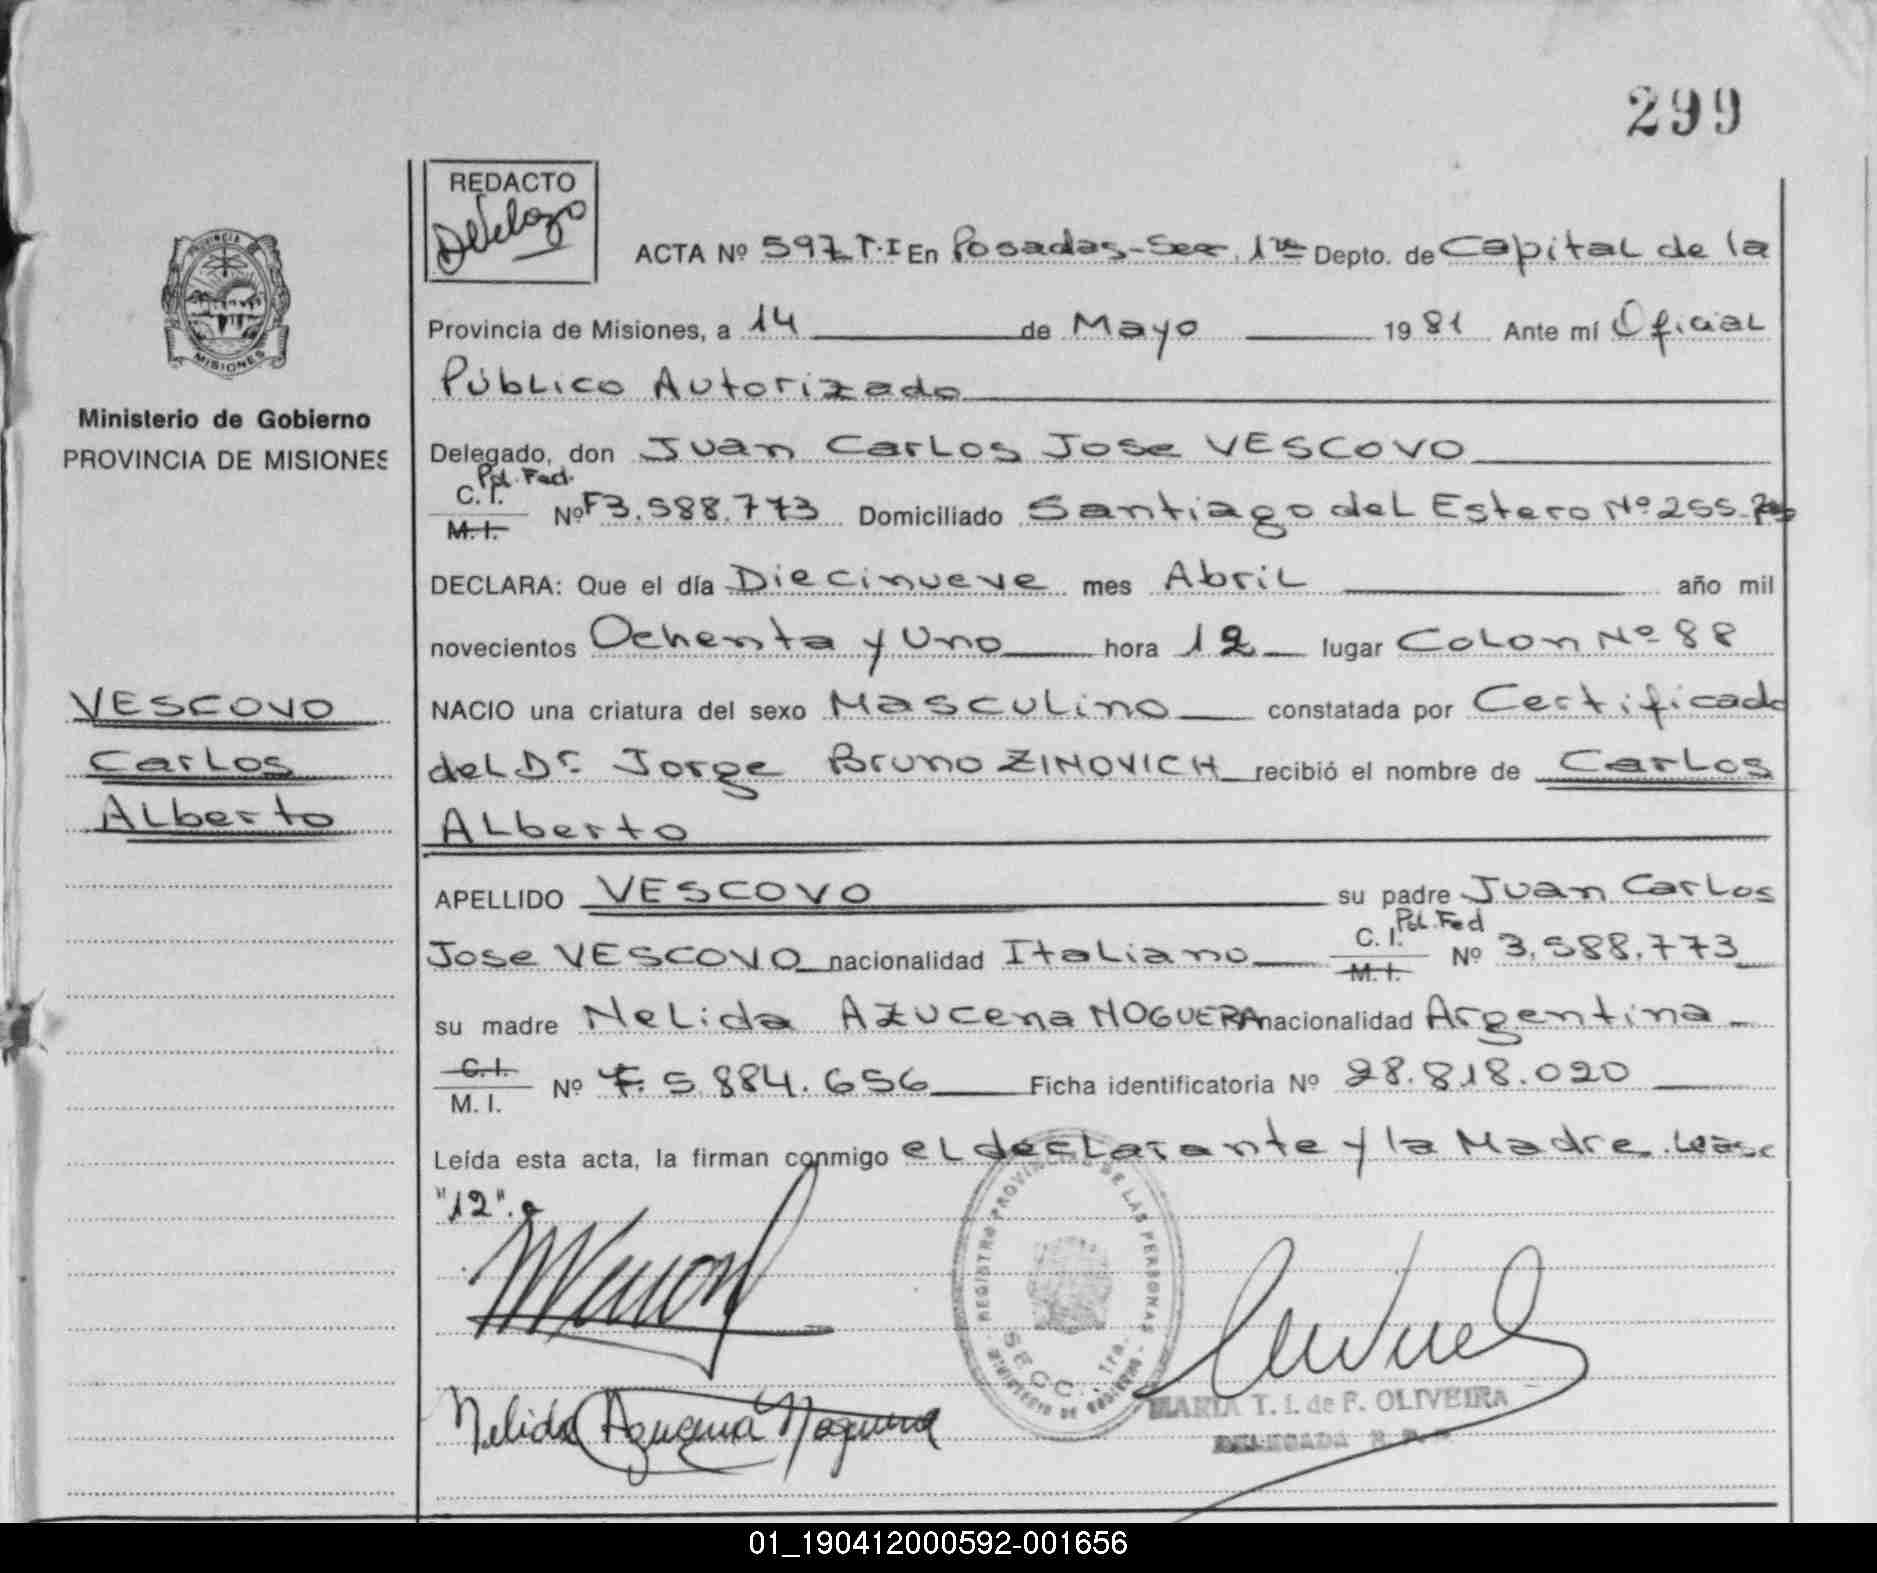 299
REDACTO
ACTA Nº 597 T.I En Posadas-Sec. 1ra Depto. de Capital de la
Provincia de Misiones, a 14 de Mayo 1981 Ante mí Oficial
Público Autorizado
Delegado, don Juan Carlos Jose VESCOVO
Pol. Fed.
C. I.
M. I. Nº F3.588.773 Domiciliado Santiago del Estero Nº 255.
DECLARA: Que el día Diecinueve mes Abril año mil
novecientos Ochenta y Uno hora 12 lugar Colon Nº 88
NACIO una criatura del sexo Masculino constatada por Certificado
del Dr. Jorge Bruno ZINOVICH recibió el nombre de Carlos
Alberto
APELLIDO VESCOVO su padre Juan Carlos
Pol. Fed
Jose VESCOVO nacionalidad Italiano C. I. M. I. Nº 3.588.773
su madre Nelida Azucena NOGUERA nacionalidad Argentina
C. I.
M. I. Nº F. 5.884.656 Ficha identificatoria Nº 28.818.020
Leída esta acta, la firman conmigo el declarante y la Madre. Lease
"12".
Nelida Azucena Noguera
REGISTRO PROVINCIAL DE LAS PERSONAS
SECC. 1ra.
MINISTERIO DE GOBIERNO
MARIA T. I. de F. OLIVEIRA
DELEGADA R. P.
PROVINCIA
MISIONES
Ministerio de Gobierno
PROVINCIA DE MISIONES
VESCOVO
Carlos
Alberto
01_190412000592-001656